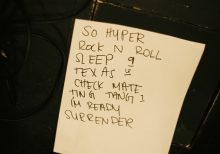 SO HYPER
ROCK N ROLL
SLEEP 9
TEXAS
CHECK MATE
TING TANGI
I'M READY
SURRENDER